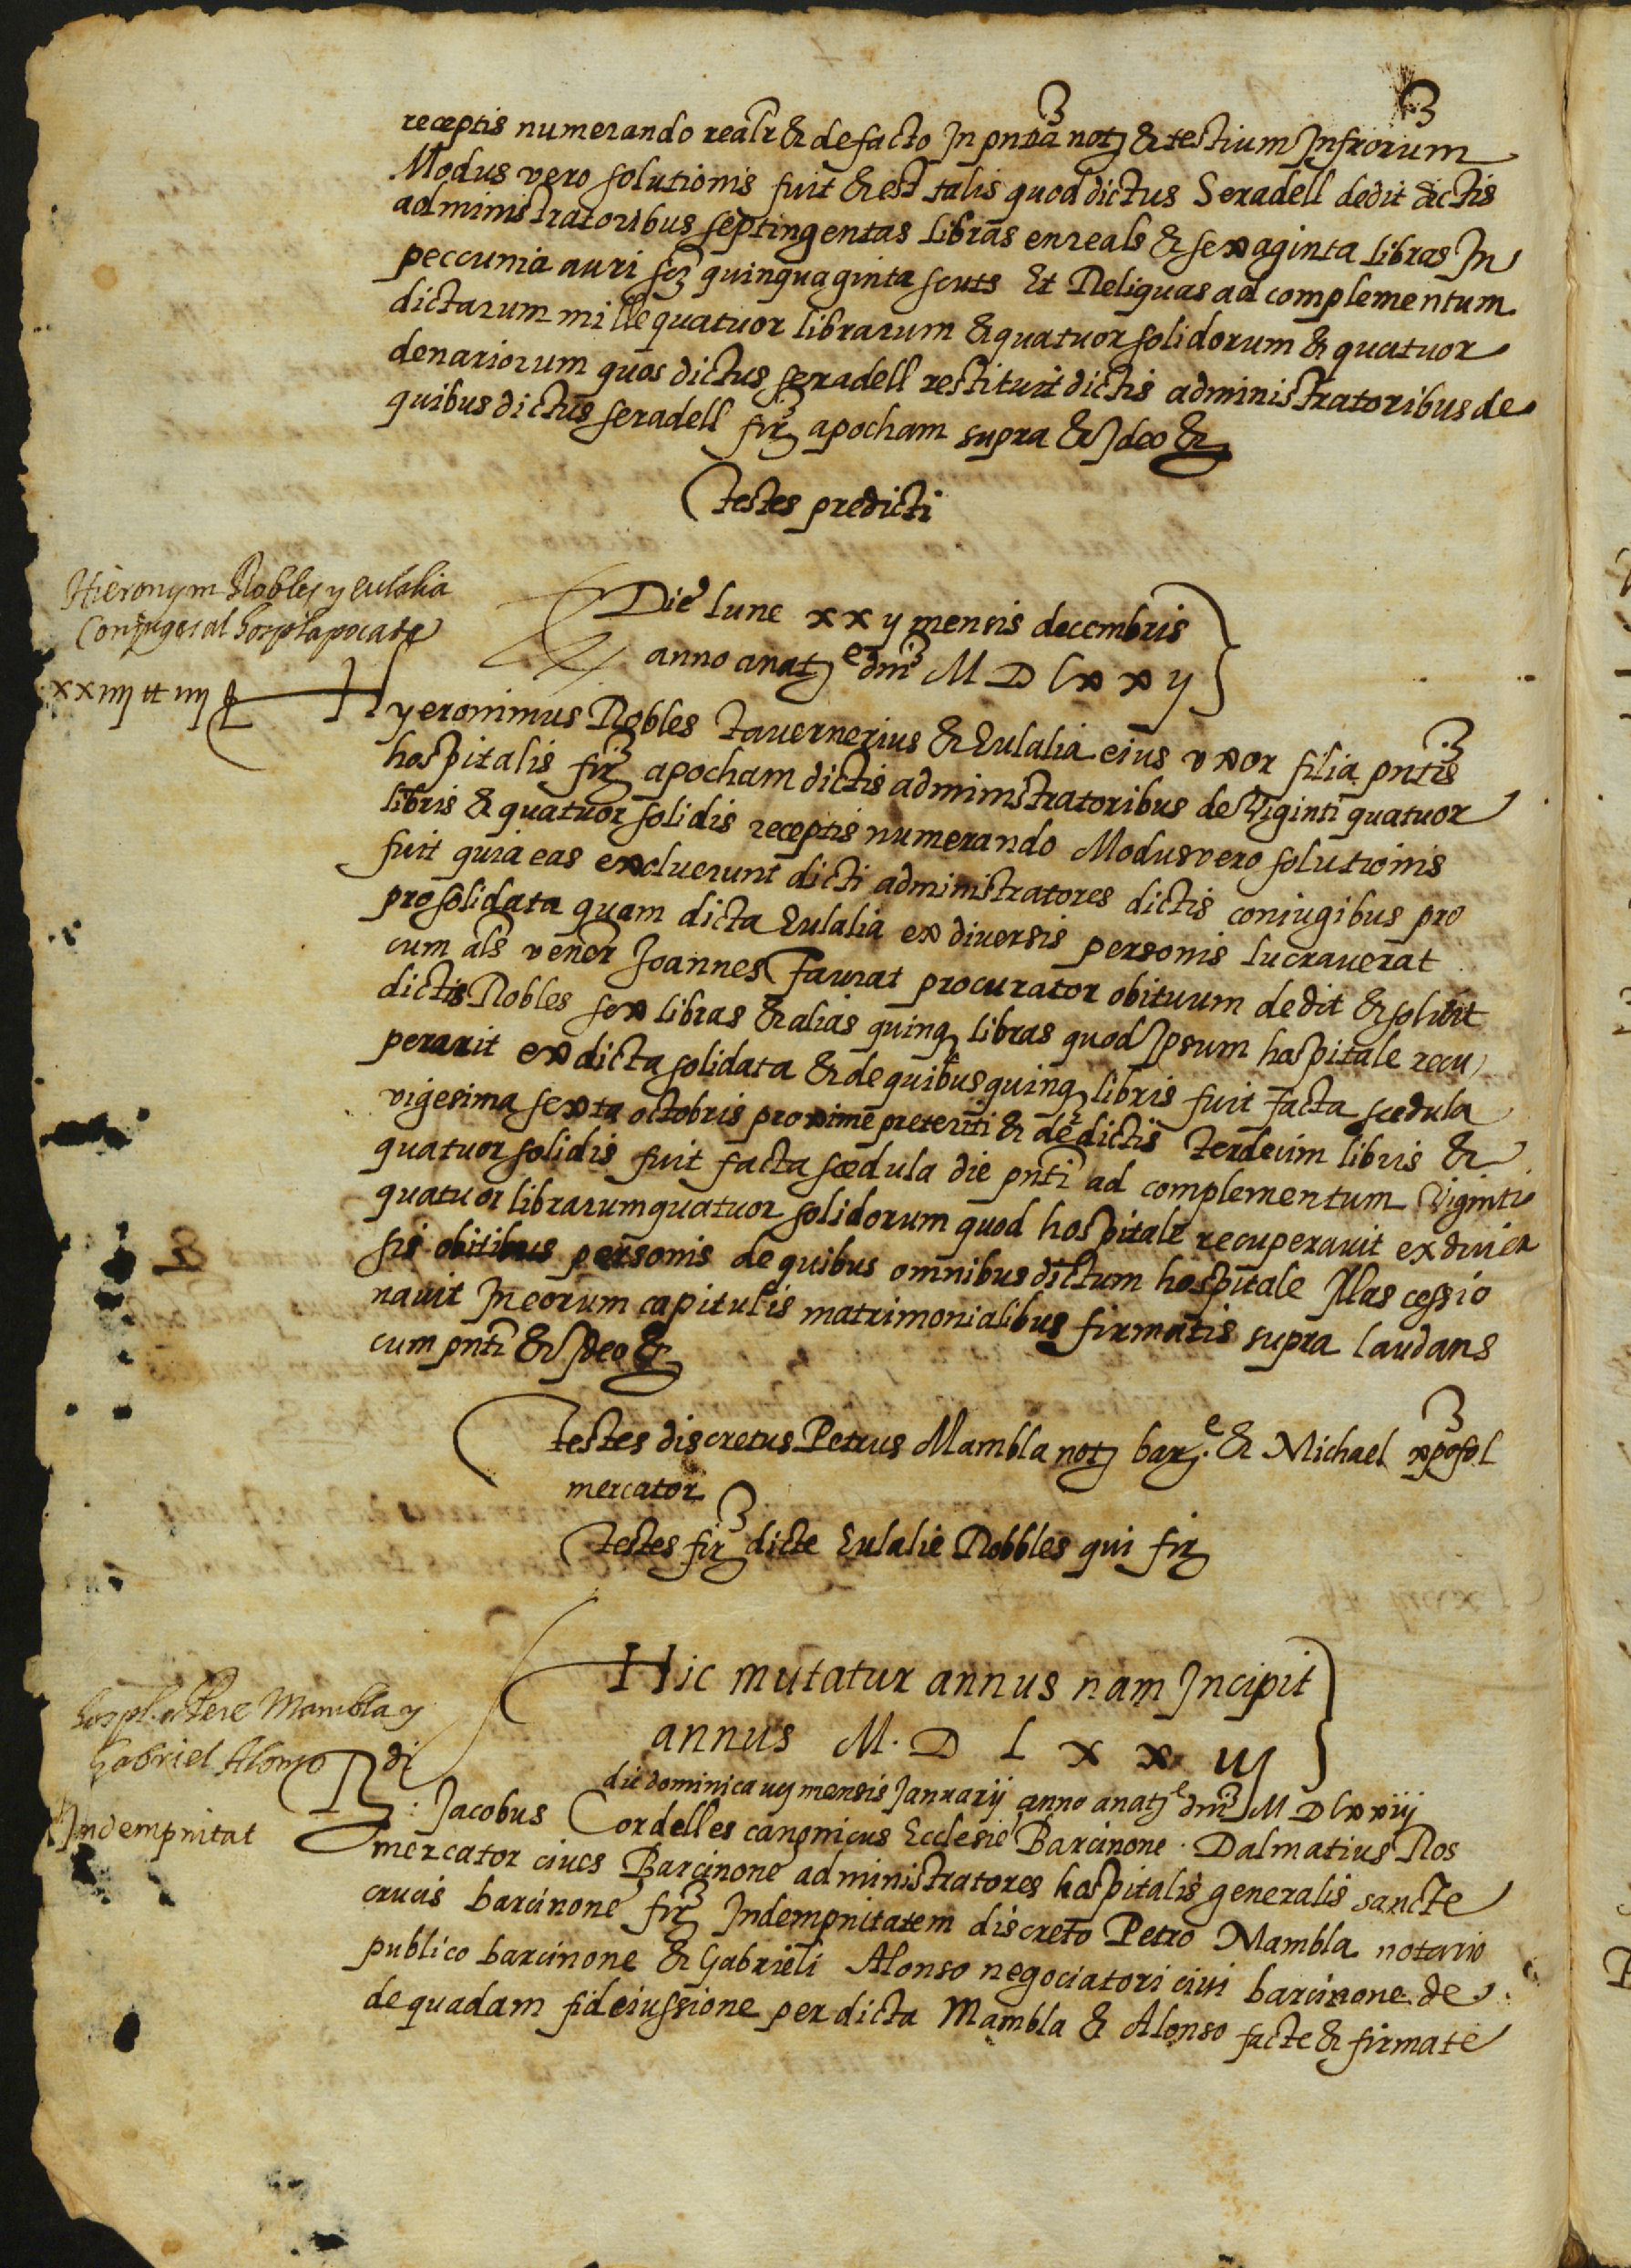 receptis numerando realr & de facto Jn pntia not & testium Jnfrorum
Modus vero solutionis fuit & est talis quod dictus Seradell dedit dictis
administratoribus septingentas libras en reals & sexaginta libras Jn
peccunia auri scz quinquaginta scuts Et Reliquas ad complementum
dictarum mille quatuor librarum & quatuor solidorum & quatuor
denariorum quos dictus seradell restituit dictis administratoribus de
quibus dictus seradell fir apocham supra & Jdeo &
testes predicti
Hieronym Robles y eulalia
Conjuges al hospl apocata
xxiiij ll iiij ß
Die lune xxij mensis decembris
anno a nat e dni M D lxxij
Hyeronimus Robles tauernerius & Eulalia eius uxor filia pntis
hospitalis fir apocham dictis administratoribus de Viginti quatuor
libris & quatuor solidis receptis numerando Modus vero solutionis
fuit quia eas exoluerunt dicti administratores dictis coniugibus pro
pro solidata quam dicta Eulalia ex diuersis personis lucrauerat
cum als vener Joannes Faurat procurator obituum dedit & soluit
dictis Robles sex libras & alias quinq libras quod Jpsum hospitale recu
perauit ex dicta solidata & de quibus quinq libris fuit facta scedula
vigesima sexta octobris proxime preteriti & de dictis terdecim libris &
quatuor solidis fuit facta scedula die pnti ad complementum Viginti
quatuor librarum quatuor solidorum quod hospitale recuperauit ex diuer
sis personis de quibus omnibus dictum hospitale Jllas cessio
nauit Jn eorum capitulis matrimonialibus firmatis supra laudans
cum pnti & Jdeo &
testes discretus Petrus Mambla not bar e & Michael xpofol
mercator
testes fir dicte Eulalie Robbles qui fir
Hic mutatur annus nam Jncipit
annus M. D l x x iij
hospl a Pere Mambla y
Gabriel Alonso
Jndempnitat
die dominica iiij mensis Januarij anno a nat e dni M D lxxiij
Rdi Jacobus Cordelles canonicus Ecclesie Barcinone. Dalmatius Ros
mercator ciues Barcinone administratores hospitalis generalis sancte
crucis barcinone fir Jndempnitatem discreto Petro Mambla notario
publico barcinone & Gabrieli Alonso negociatori ciui barcinone de
de quadam fideiussione per dicta Mambla & Alonso facte & firmate